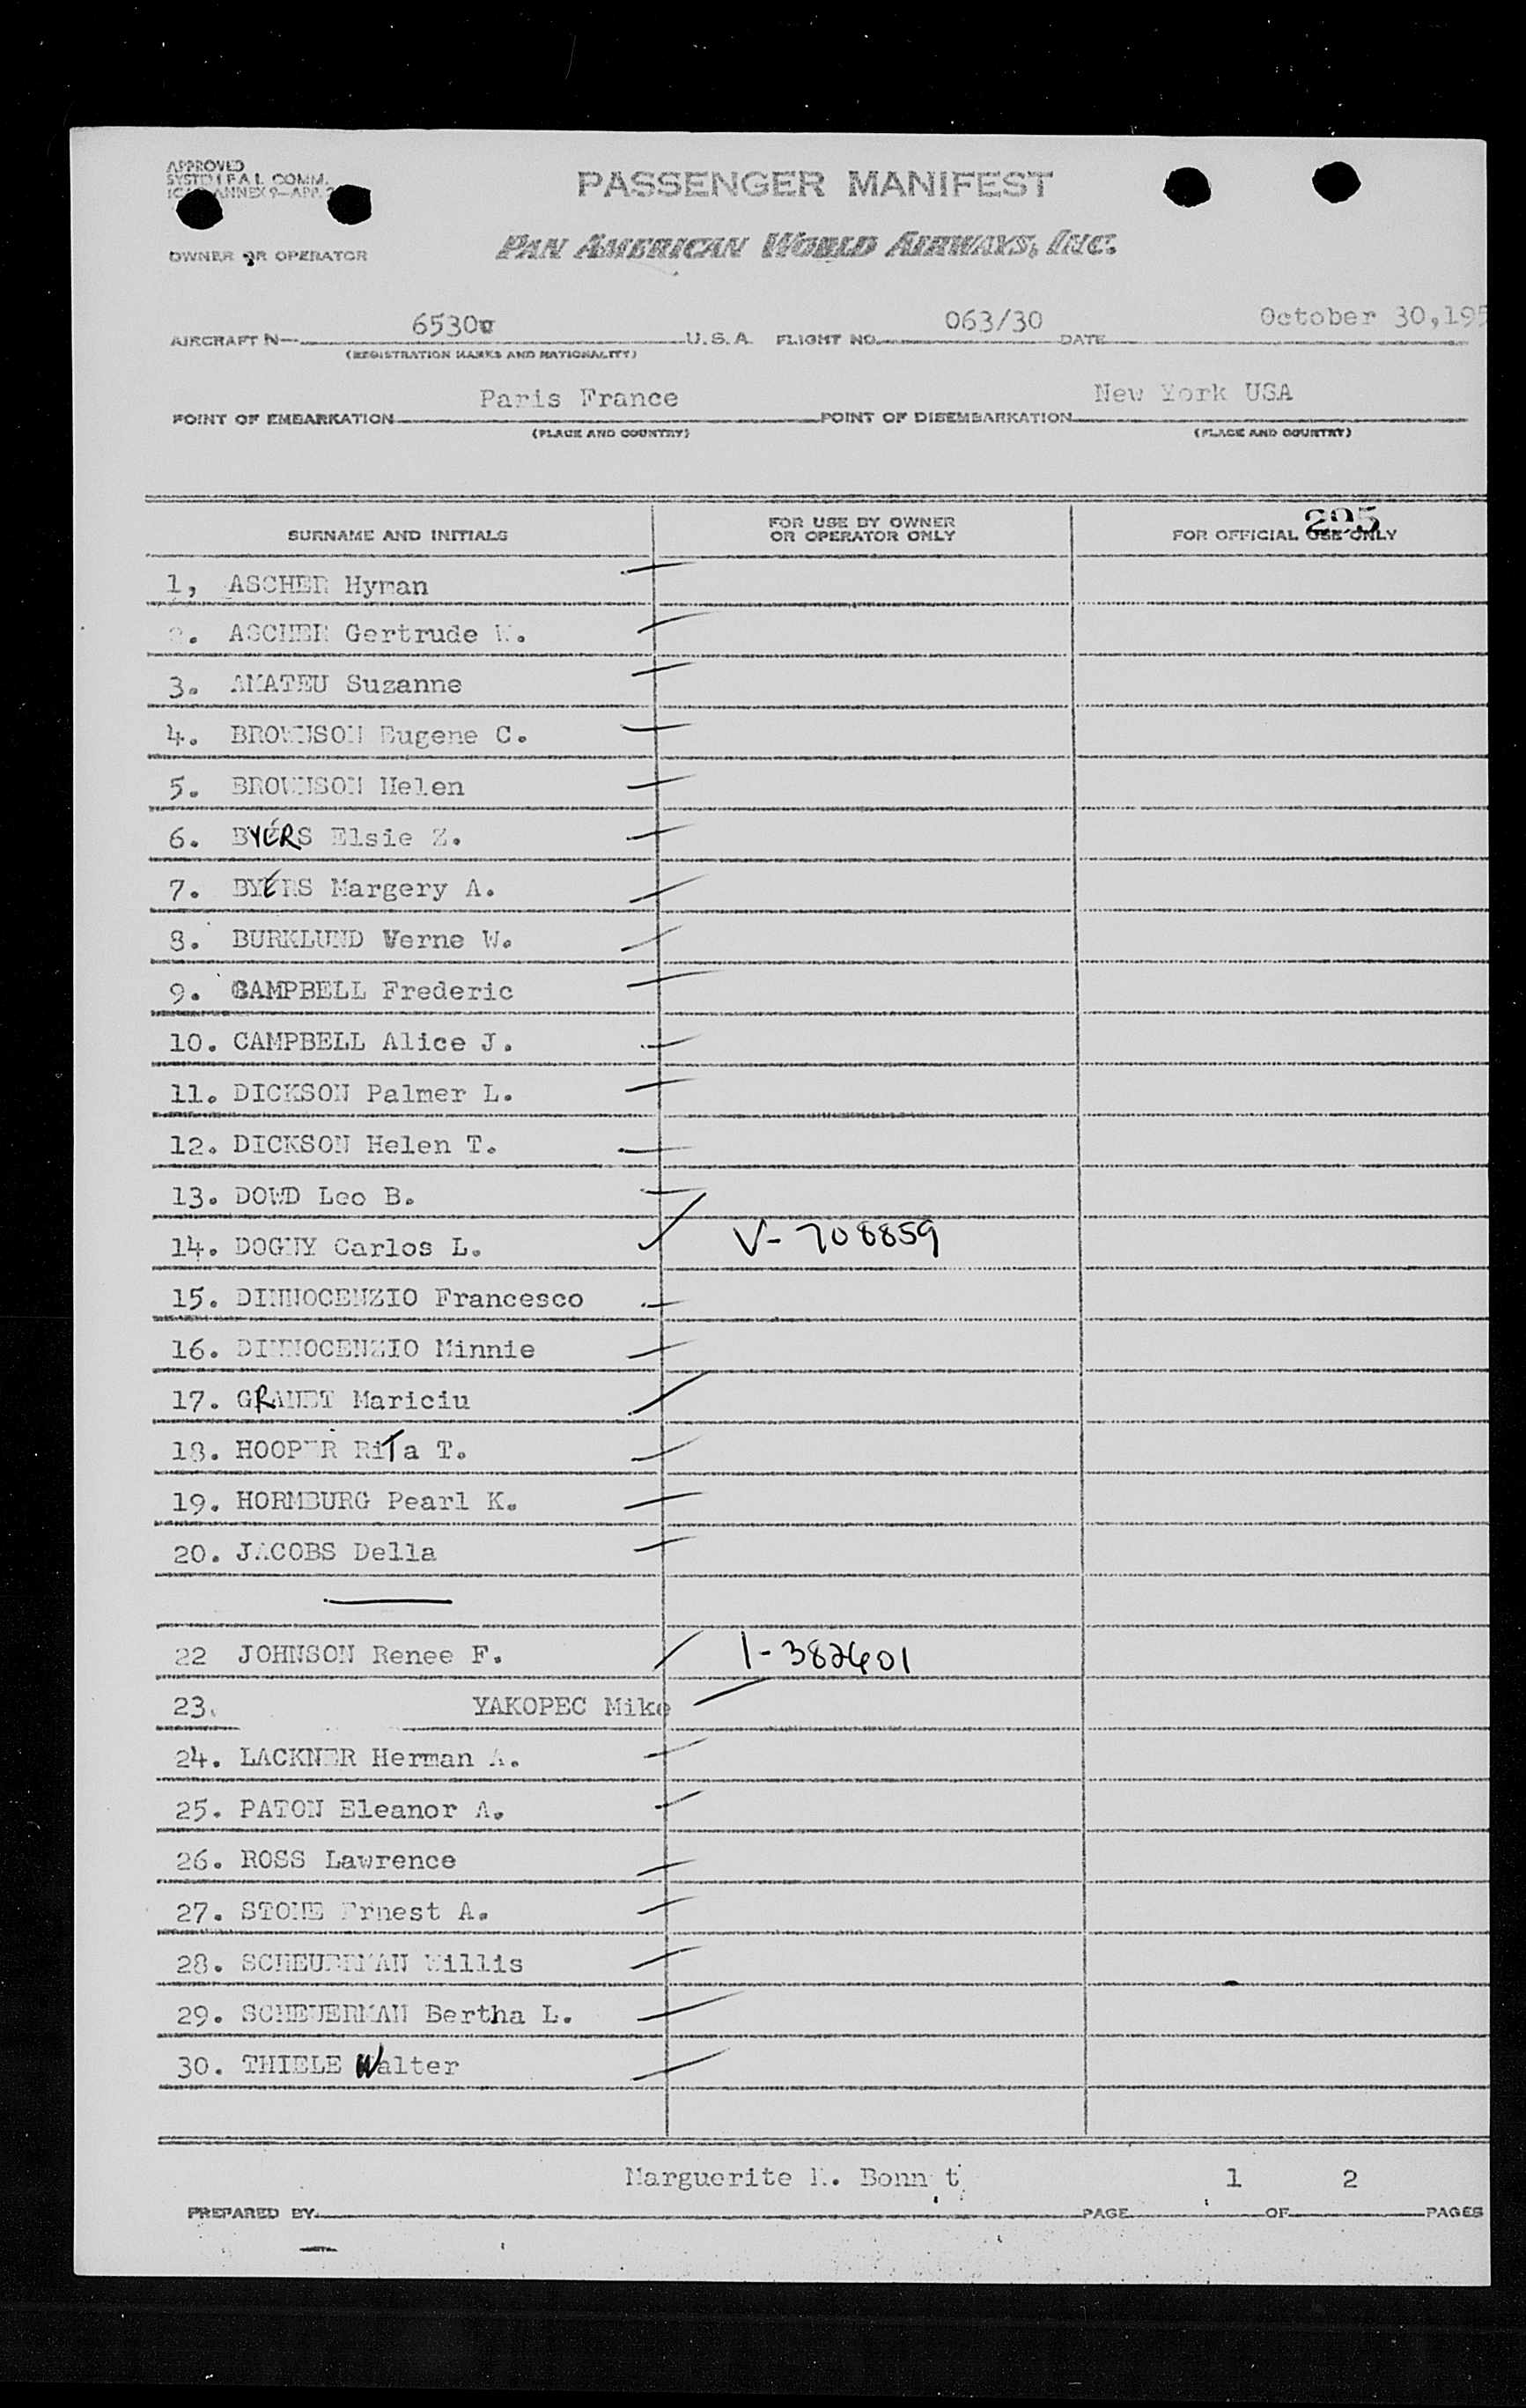 APPROVED
SYSTEM F.A.L. COMM.
ANNEX 9—APP.
PASSENGER MANIFEST
OWNER OR OPERATOR
PAN AMERICAN WORLD AIRWAYS, INC.
AIRCRAFT N— 6530 U.S.A. FLIGHT NO. 063/30 DATE October 30,195
(REGISTRATION MARKS AND NATIONALITY)
POINT OF EMBARKATION Paris France POINT OF DISEMBARKATION New York USA
(PLACE AND COUNTRY) (PLACE AND COUNTRY)
295
SURNAME AND INITIALS FOR USE BY OWNER OR OPERATOR ONLY FOR OFFICIAL USE ONLY
1, ASCHER Hyman
2. ASCHER Gertrude W.
3. AMATEU Suzanne
4. BROWNSON Eugene C.
5. BROWNSON Helen
6. BYERS Elsie Z.
7. BYERS Margery A.
8. BURKLUND Verne W.
9. CAMPBELL Frederic
10. CAMPBELL Alice J.
11. DICKSON Palmer L.
12. DICKSON Helen T.
13. DOWD Leo B.
14. DOGNY Carlos L. V-708859
15. DINNOCENZIO Francesco
16. DINNOCENZIO Minnie
17. GRANET Mariciu
18. HOOPER RiTa T.
19. HORMBURG Pearl K.
20. JACOBS Della
22 JOHNSON Renee F. 1-382601
23. YAKOPEC Mike
24. LACKNER Herman A.
25. PATON Eleanor A.
26. ROSS Lawrence
27. STONE Ernest A.
28. SCHEUERMAN Willis
29. SCHEUERMAN Bertha L.
30. THIELE Walter
PREPARED BY Marguerite M. Bonn t PAGE 1 OF 2 PAGES